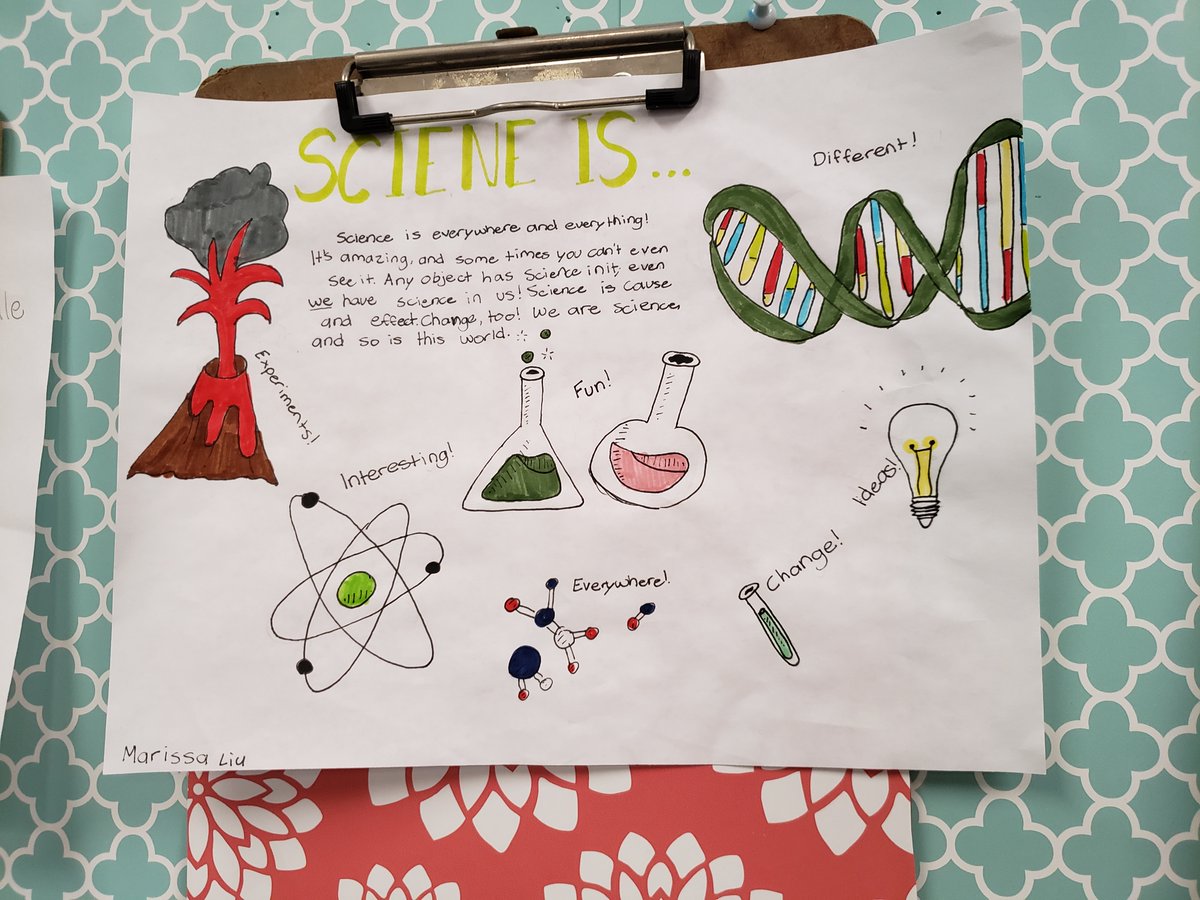 SCIENE IS...
Different!
Science is everywhere and everything!
It's amazing, and some times you can't even
see it. Any object has Science in it, even
we have science in us! Science is cause
and effect. Change, too! We are science,
and so is this world.
Experiments!
Fun!
Interesting!
Ideas!
Change!
Everywhere!
Marissa Liu